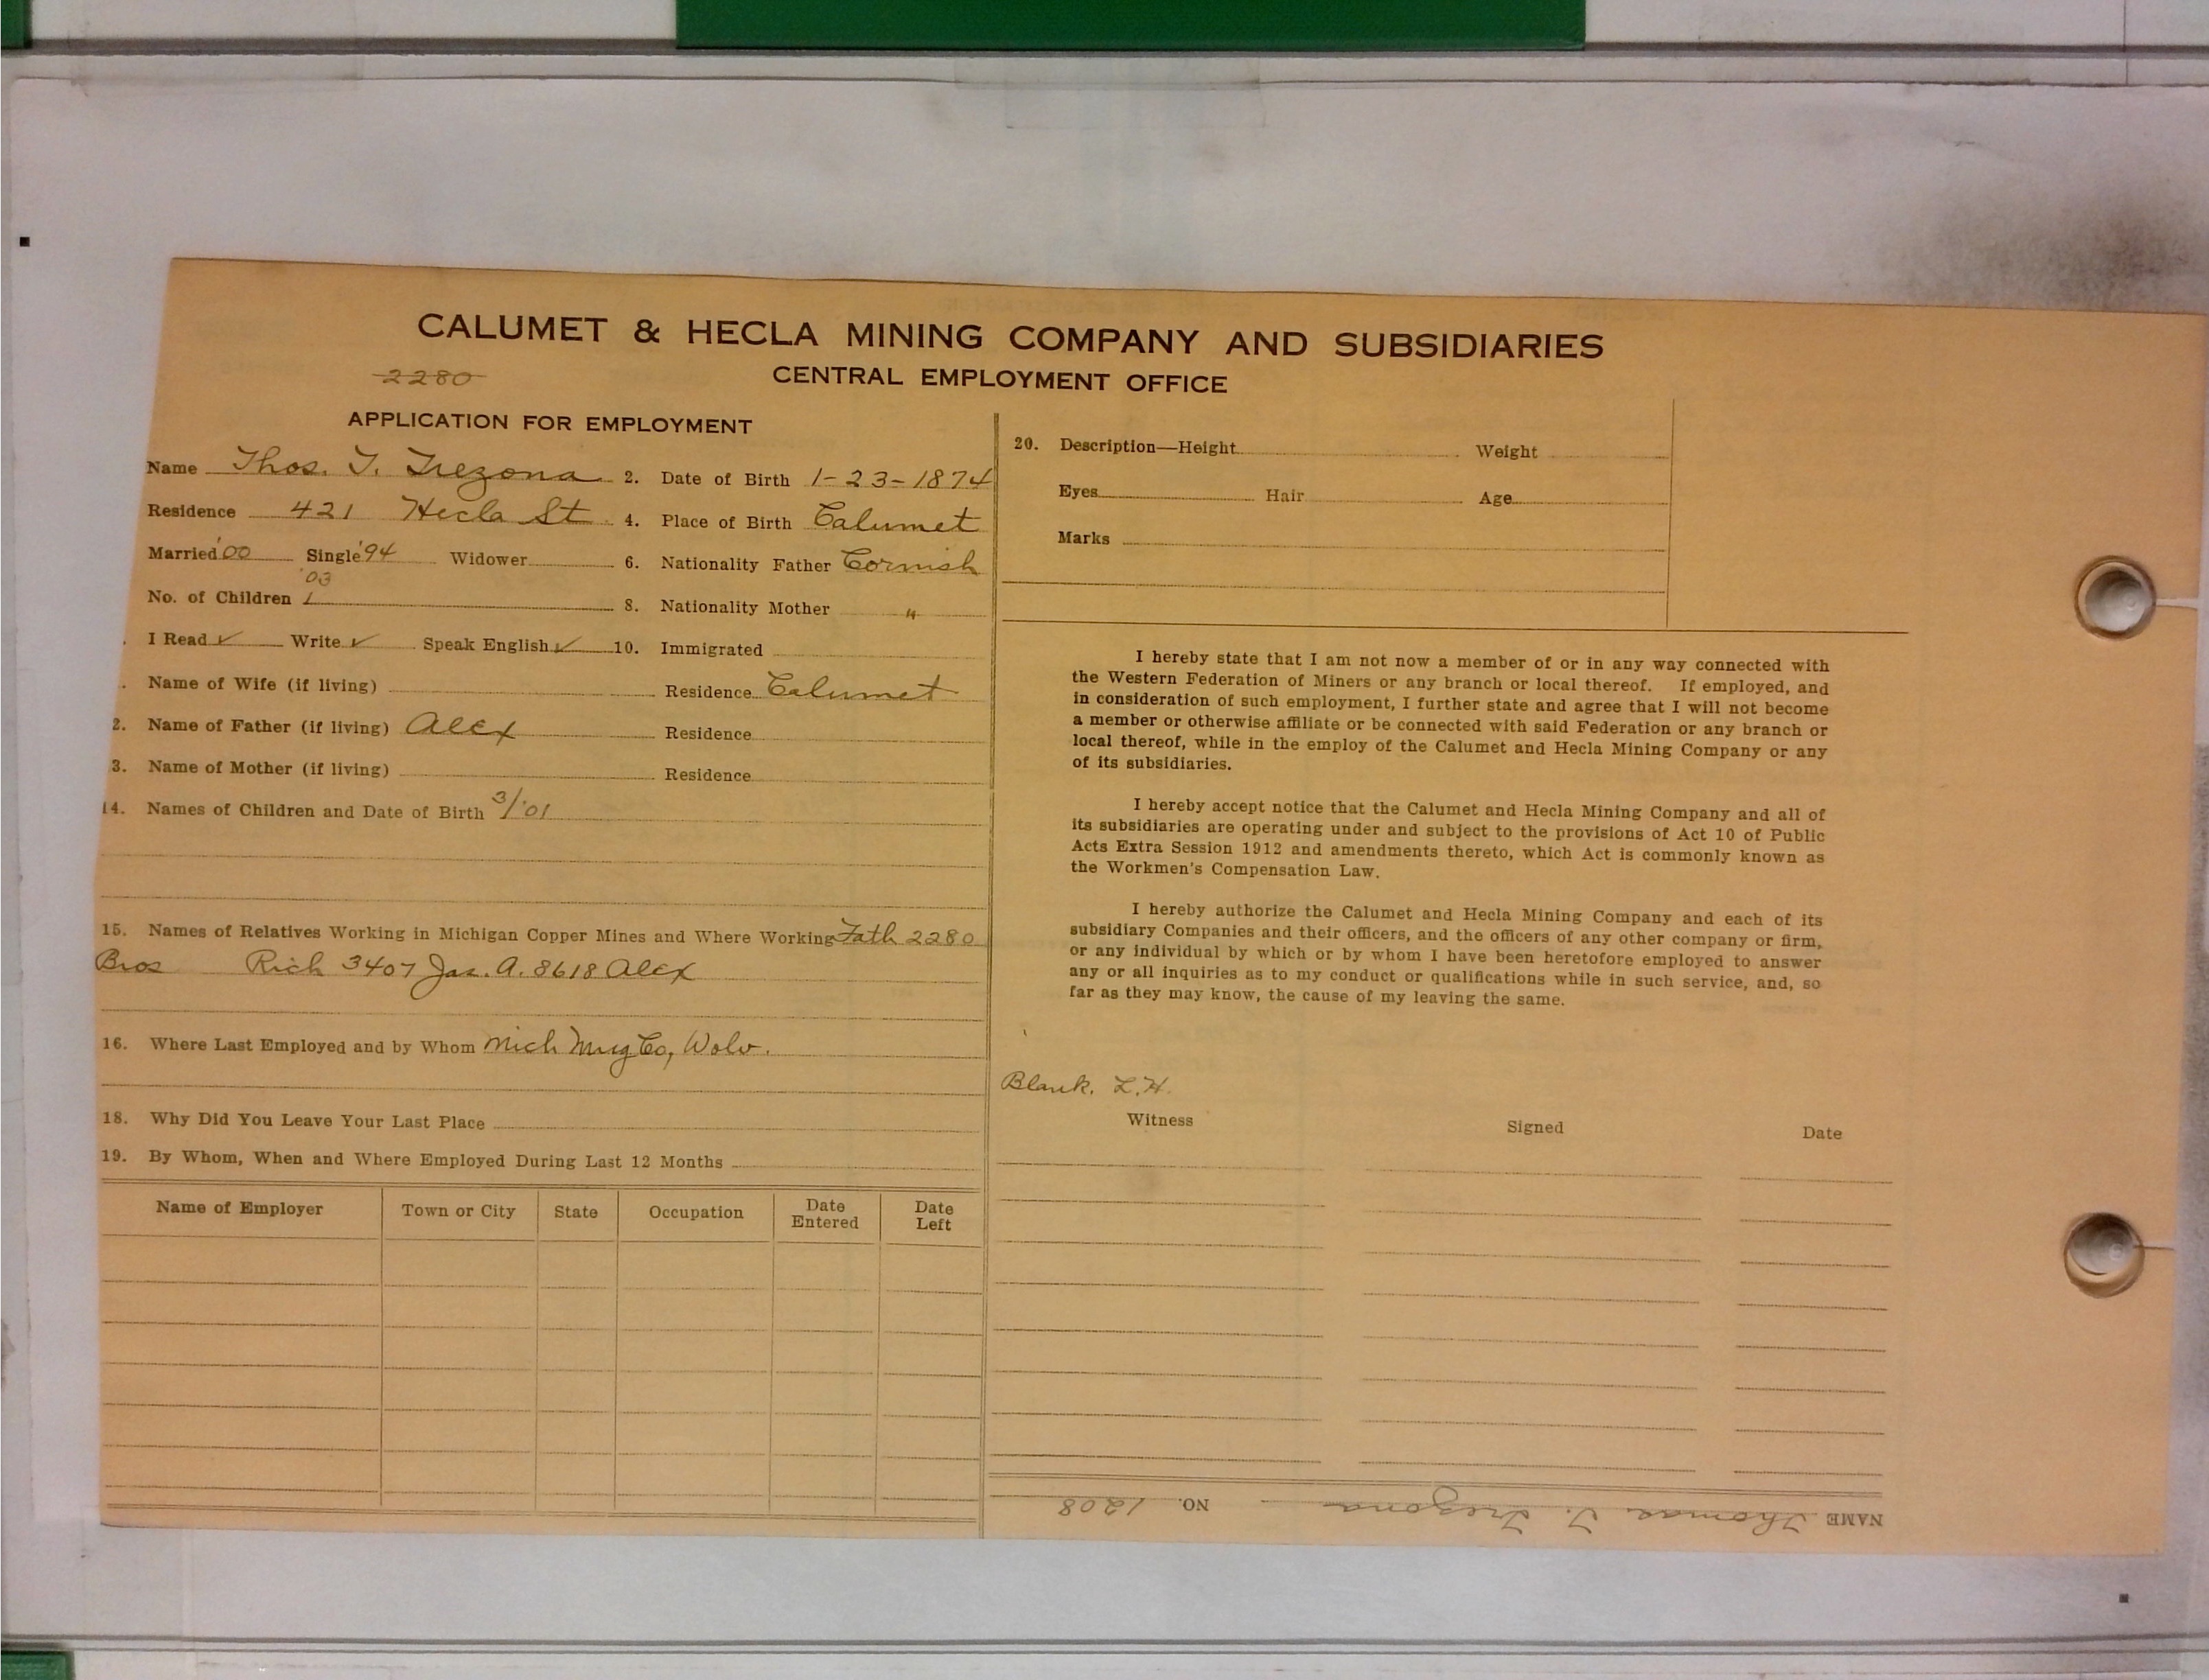 CALUMET & HECLA MINING COMPANY AND SUBSIDIARIES
2280
CENTRAL EMPLOYMENT OFFICE
APPLICATION FOR EMPLOYMENT
Name Thos. T. Trezona 2. Date of Birth 1-23-1874
Residence 421 Hecla St 4. Place of Birth Calumet
Married '00 Single '94 Widower 6. Nationality Father Cornish
'03
No. of Children 1 8. Nationality Mother "
I Read ✓ Write ✓ Speak English ✓ 10. Immigrated
Name of Wife (if living) Residence Calumet
2. Name of Father (if living) Alex Residence
3. Name of Mother (if living) Residence
14. Names of Children and Date of Birth 3/'01
15. Names of Relatives Working in Michigan Copper Mines and Where Working Fath 2280
Bros Rich 3407 Jas. A. 8618 Alex
16. Where Last Employed and by Whom Mich Mng Co, Wolv.
18. Why Did You Leave Your Last Place
19. By Whom, When and Where Employed During Last 12 Months
Name of Employer Town or City State Occupation Date Entered Date Left
20. Description—Height Weight
Eyes Hair Age
Marks
I hereby state that I am not now a member of or in any way connected with
the Western Federation of Miners or any branch or local thereof. If employed, and
in consideration of such employment, I further state and agree that I will not become
a member or otherwise affiliate or be connected with said Federation or any branch or
local thereof, while in the employ of the Calumet and Hecla Mining Company or any
of its subsidiaries.
I hereby accept notice that the Calumet and Hecla Mining Company and all of
its subsidiaries are operating under and subject to the provisions of Act 10 of Public
Acts Extra Session 1912 and amendments thereto, which Act is commonly known as
the Workmen's Compensation Law.
I hereby authorize the Calumet and Hecla Mining Company and each of its
subsidiary Companies and their officers, and the officers of any other company or firm,
or any individual by which or by whom I have been heretofore employed to answer
any or all inquiries as to my conduct or qualifications while in such service, and, so
far as they may know, the cause of my leaving the same.
Blank. L.H.
Witness Signed Date
NAME Thomas T. Trezona NO. 1208